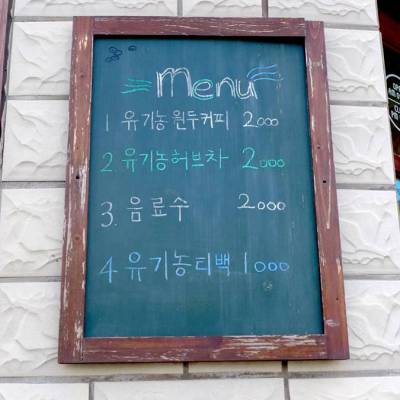 Menu
1 유기농원두커피 2000
2. 유기농허브차 2000
3. 음료수 2000
4 유기농티백 1000